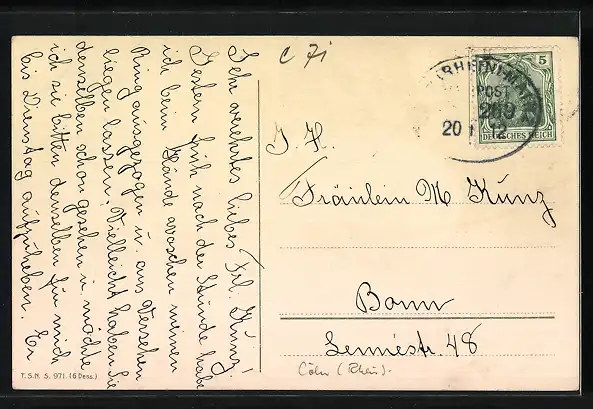 Sehr verehrtes liebes Frl. Kunz!
Gestern früh nach der Stunde habe
ich beim Hände waschen meinen
Ring ausgezogen u. aus Versehen
liegen lassen. Vielleicht haben Sie
denselben schon gesehen u. möchte
ich sie bitten denselben für mich
bis Dienstag aufzuheben. Er
T. S. N. S. 971. (6 Dess.)
c 71
5
DEUTSCHES REICH
POST
20
I. H.
Fräulein M Kunz
Bonn
Lennéstr. 48
Cöln (Rhein).